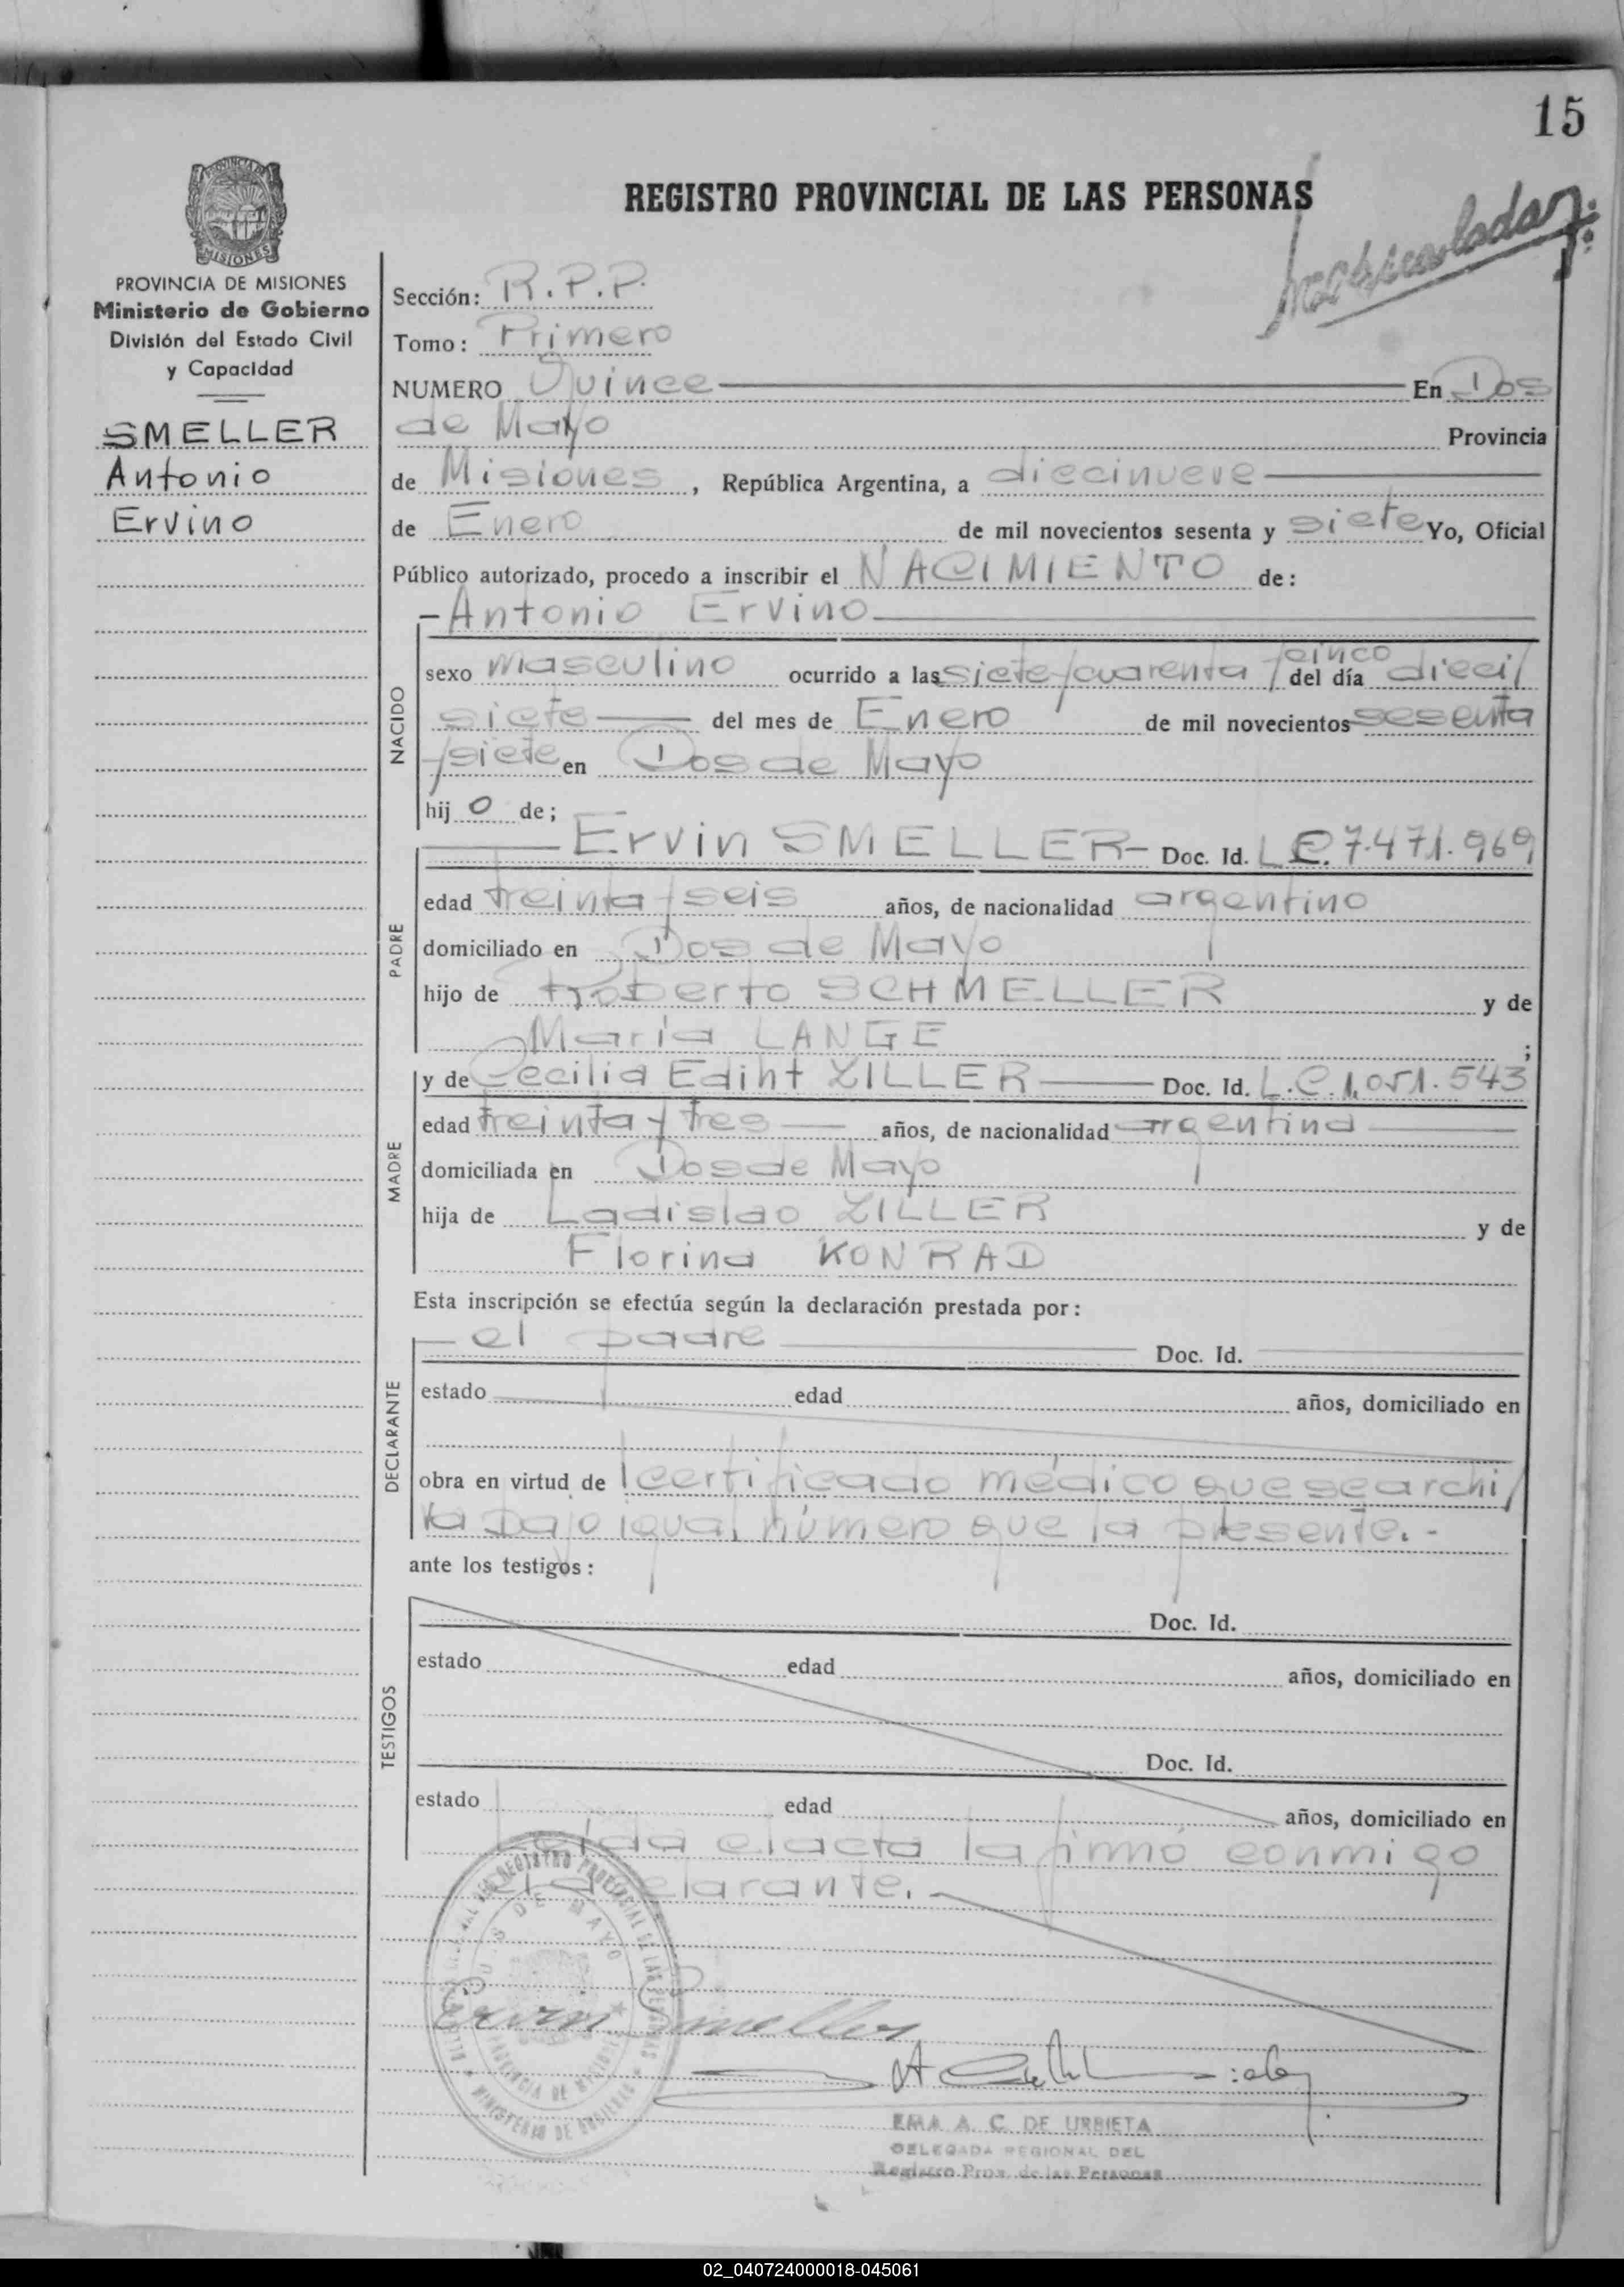 15
REGISTRO PROVINCIAL DE LAS PERSONAS
PROVINCIA DE MISIONES
Ministerio de Gobierno
División del Estado Civil
y Capacidad
SMELLER
Antonio
Ervino
Sección: R.P.P.
Tomo: Primero
NUMERO Quince En Dos
de Mayo Provincia
de Misiones, República Argentina, a diecinueve
de Enero de mil novecientos sesenta y siete Yo, Oficial
Público autorizado, procedo a inscribir el NACIMIENTO de:
- Antonio Ervino
NACIDO
sexo masculino ocurrido a las siete y cuarenta y cinco del día dieci/
siete del mes de Enero de mil novecientos sesenta
y siete en Dos de Mayo
hijo de;
Ervin SMELLER- Doc. Id. L.E. 7.471.969
PADRE
edad treinta y seis años, de nacionalidad argentino
domiciliado en Dos de Mayo
hijo de Roberto SCHMELLER y de
María LANGE ;
y de Cecilia Ediht ZILLER Doc. Id. L.C.1.051.543
MADRE
edad treinta y tres años, de nacionalidad argentina
domiciliada en Dos de Mayo
hija de Ladislao ZILLER y de
Florina KONRAD
Esta inscripción se efectúa según la declaración prestada por:
- el padre Doc. Id.
DECLARANTE
estado edad años, domiciliado en
obra en virtud de l certificado médico que se archi/
va bajo igual número que la presente.-
ante los testigos:
Doc. Id.
TESTIGOS
estado edad años, domiciliado en
Doc. Id.
estado edad años, domiciliado en
Leída el acta la firmó conmigo
el declarante.-
DOS DE MAYO
PROVINCIA DE MISIONES
MINISTERIO DE GOBIERNO
Ervin Smeller
EMA A. C. DE URBIETA
DELEGADA REGIONAL DEL
Registro Prov. de las Personas
02_040724000018-045061